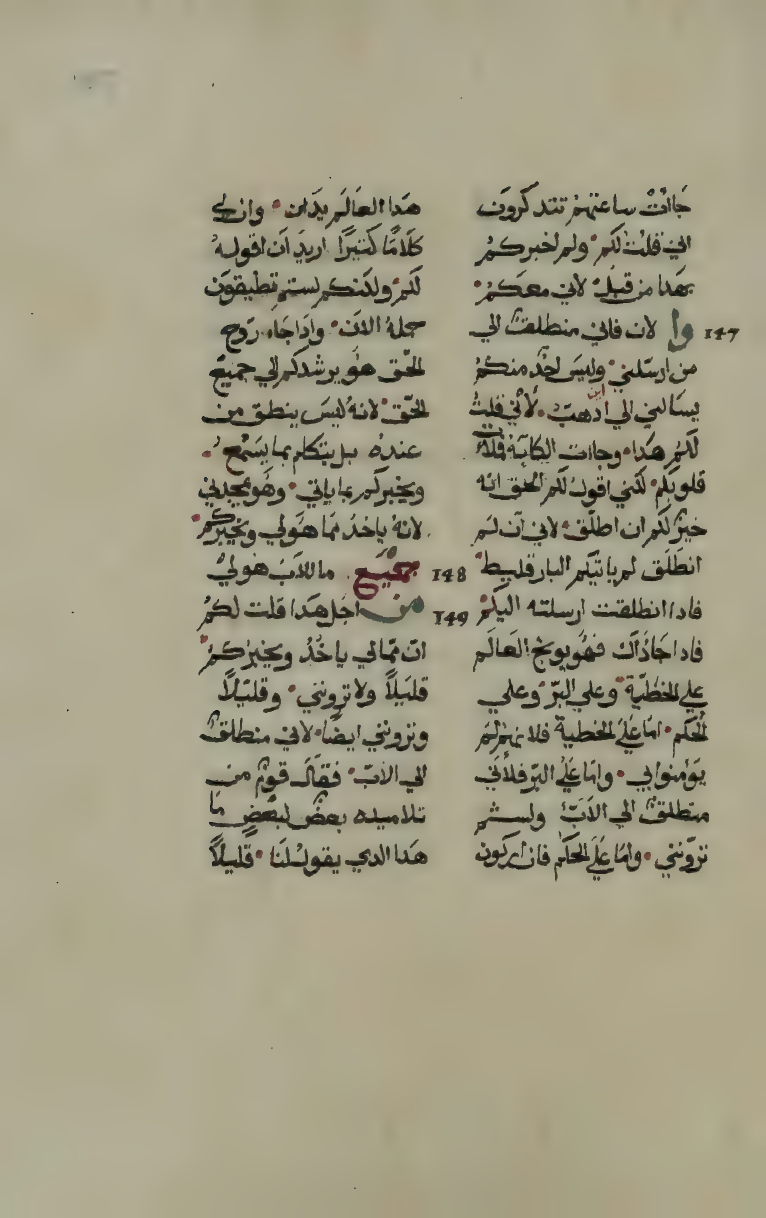 جاات ساعتهم تتدكرون
اني قلت لكم ولم اخبركم
بهدا من قبل لاني معكم
147 وا لان فاني منطلق الي
من ارسلني وليس احد منكم
يسالني الي اين ادهب لاني قلت
لكم هدا وجاات الكابة فملات
قلوبكم لكني اقول لكم الحق انه
خير لكم ان اطلق لاني ان لم
انطلق لم ياتيكم البارقليط
فادا انطلقت ارسلته اليكم
فادا جا داك فهو يوبخ العالم
علي الخطية وعلي البر وعلي
الحكم اما علي الخطية فلانهم لم
يومنوا بي واما علي البر فلاني
منطلق الي الاب ولستم
تروني واما علي الحكم فان اركون
هدا العالم يدان وان لي
كلاما كتيرا اريد ان اقوله
لكم ولكنكم لستم تطيقون
حمله الان وادا جاء روح
الحق هو يرشدكم الي جميع
الحق لانه ليس ينطق من
عنده بل يتكلم بما يسمع
ويخبركم بما ياتي وهو يمجدني
لانه ياخد مما هو لي ويخبركم
148 جميع ما للاب هو لي
149 من اجل هدا قلت لكم
ان مما لي ياخد ويخبركم
قليلا ولا تروني وقليلا
وتروني ايضا لاني منطلق
الي الاب فقال قوم من
تلاميده بعض لبعض ما
هدا الدي يقول لنا قليلا